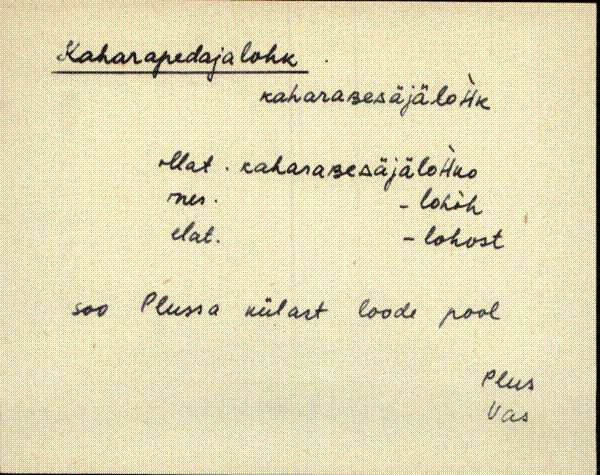 Kaharapedajalohk
kaharaʙesäjälòHk
illat. kaharaʙesäjälòHko
ines. - lohòh
elat. - lohost
soo Plussa külast loode pool
Plus
Vas